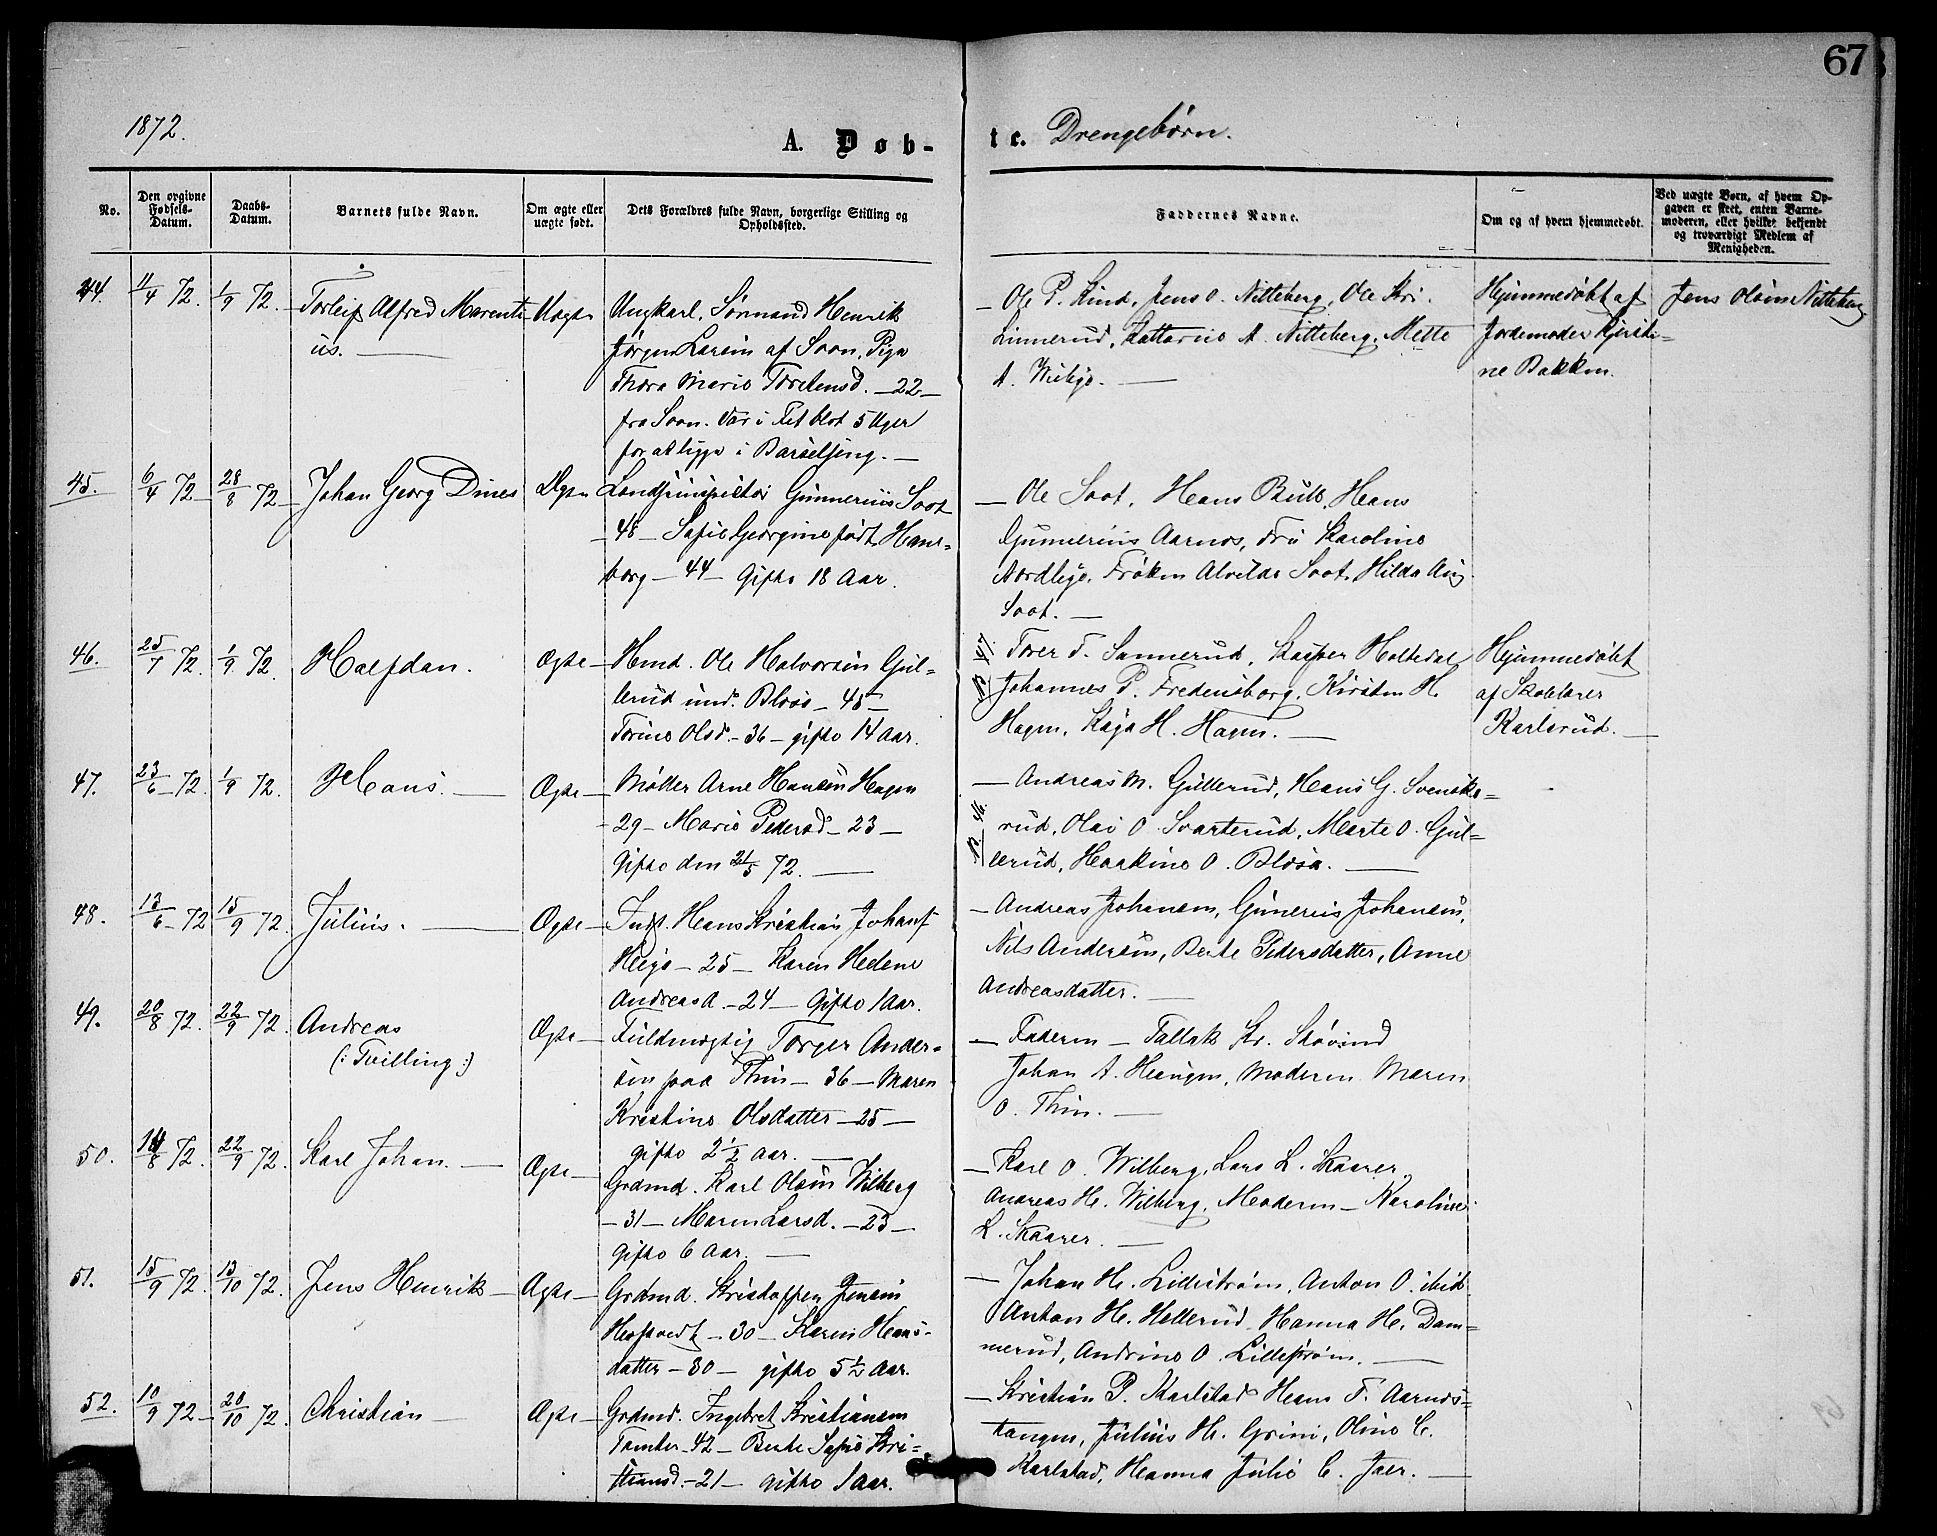 67
1872.
A. Døb-
te. Drengebørn.
No.
Den opgivne Fødsels-Datum.
Daabs-Datum.
Barnets fulde Navn.
Om ægte eller uægte født.
Dets Forældres fulde Navn, borgerlige Stilling og Opholdssted.
Faddernes Navne.
Om og af hvem hjemmedøbt.
Ved uægte Børn, af hvem Opgaven er skeet, enten Barnemoderen, eller hvilket bekjendt og troværdigt Medlem af Menigheden.
44. 11/4 72. 1/9 72. Torleif Alfred Marenti-
us. Uægte
Ungkarl, Sørmand Henrik
Jørgen Larsen af Soon, Pige
Thora Marie Torstensd. - 22 -
fra Soon. Var i Fet blot 5 Uger
for at ligge i Barselseng. -
- Ole P. Lund, Jens O. Nitteberg, Ole Kri.
Linnerud, Kattarine A. Nitteberg, Mette
A.
Hjemmedøbt af
Jordemoder Kjersti-
ne Bakken.
Jens Olsen Nitteberg
45. 6/4 72 28/8 72 Johan Georg Dines Ægte
Gunnerius Soot
- 48 - Sofie Georgine født Hans-
borg - 44 - Gifte 18 Aar.
- Ole Soot, Hans Bull, Hans
Gunnerius Aarnes, Fru Karoline
Nordlye, Frøken Alvilde Soot, Hilda Aug
Soot. -
46. 25/7 72 1/9 72. Halfdan. Ægte
Hmd. Ole Halvorsen Gul-
lerud und. Blose - 45 -
Torine Olsd. - 36 - gifte 14 Aar.
Torer T. Sannerud, Kasper Holtedal
Johannes P. Fredensborg, Kirsten H.
Hagen, Kaja H. Hagen. -
Hjemmedøbt
af Skolelærer
Karlsrud. -
47. 23/6 72. 1/9 72. Hans. Ægte
Møller Arne Hansen Hagen
- 29 - Marie Pedersd - 23 -
Gifte den 21/5 72. -
- Andreas M. Gullerud, Hans G. Svenske-
rud, Olai O. Svarterud, Marte O. Gul-
lerud, Haakine O. Blose. -
48. 13/6 72 15/9 72. Julius. Ægte
Indst. Hans Kristian Johans
Heie - 25 - Karen Helene
Andreasd. - 24 - Gifte 1 Aar.
- Andreas Johansen, Gunerius Johansen,
Nils Andersen, Berte Pedersdatter, Anne
Andreasdatter. -
49. 20/8 72. 22/9 72. Andreas
(: Tvilling :) Ægte
Fuldmægtig Torger Ander-
sen paa Thien - 36 - Maren
Kristine Olsdatter - 25 -
gifte 2 1/2 Aar. -
- Faderen - Tallak Kr. Skøvind
Johan A. Haugen, Moderen Maren
O. Thien. -
50. 14/8 72. 22/9 72. Karl Johan. - Ægte
Grdmd. Karl Olsen Wilberg
- 31 - Maren Larsd. - 23 -
gifte 6 Aar. -
- Karl O. Wilberg, Lars L. Skaarer,
Andreas H. Wilberg, Moderen - Karoline
L. Skaarer. -
51. 15/9 72. 13/10 72. Jens Henrik - Ægte
Grdmd. Kristoffer Jensen
- 30 - Karen Hans-
datter - 30 - gifte 5 1/2 Aar.
- Johan H. Lillestrøm, Anton O. ibid
Anton H. Hellerud Hanna H. Dam-
merud, Andrine O. Lillestrøm. -
52. 10/9 72 20/10 72. Christian - Ægte
Grdmd. Ingebret Kristiansen
Tomter - 42 - Berte Sofie Kri-
stiansd. - 21 - gifte 1 Aar.
- Kristian P. Karlstad Hans F. Aarnes-
tangen, Julius H. Grini, Oline C.
Karlstad, Hanna Julie C. Jaer. -